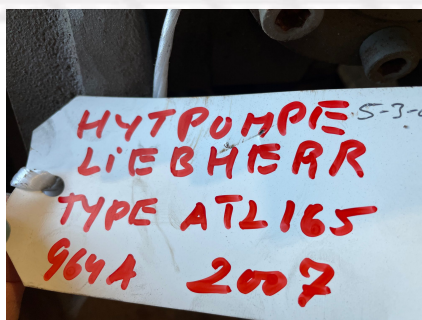 HYTPUMPE 5-3-
LiEBHERR
TYPE ATL165
964A 2007